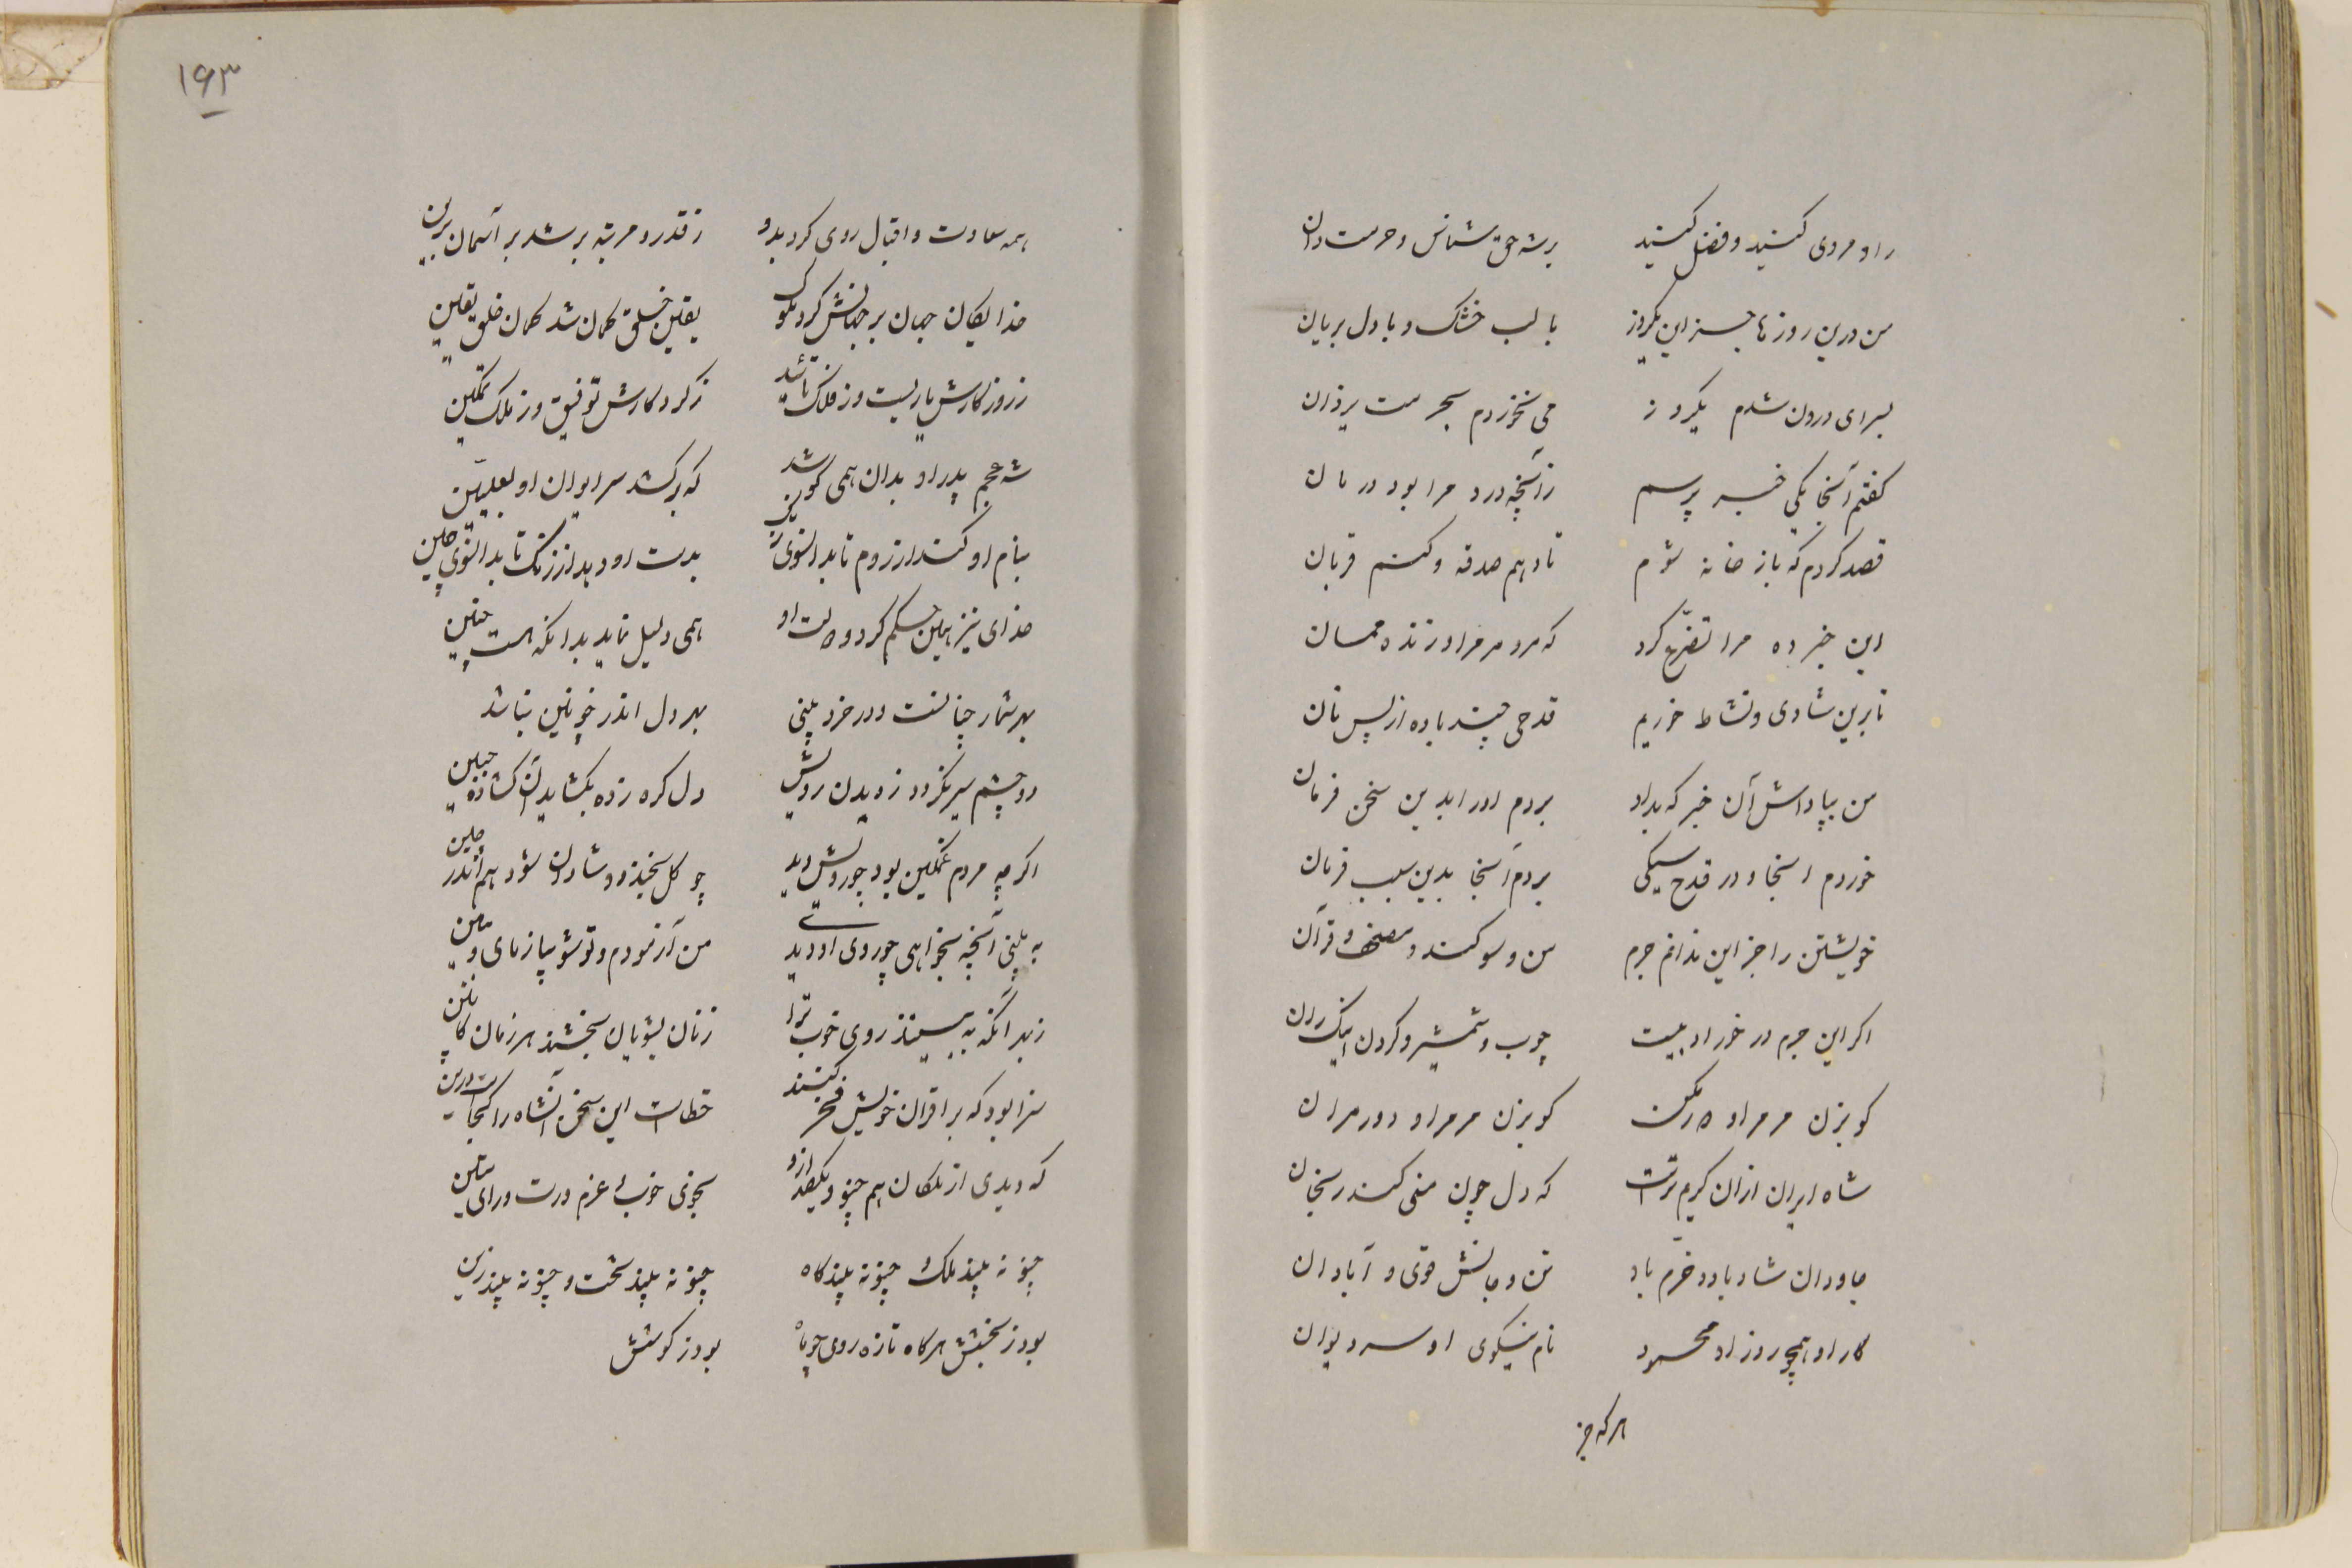 راد مردی کنید و فضل کنید برشه حق شناس و حرمت دان
من درین روزها جز این یکروز با لب خشک و با دل بریان
بسرای درون شدم یکروز می نخوردم بحرمت یزدان
گفتم آنجا یکی خبر پرسم زآنچه درد مرا بود درمان
قصد کردم که باز خانه شوم تا دهم صدقه و کنم قربان
این خبر ده مرا تضرّع کرد که مرو مر مرا و زنده ممان
تا برین شادی و نشاط خوریم قدحی چند باده از پس نان
من بپاداش آن خبر که بداد بردم او را بدین سخن فرمان
خوردم آنجا دو قدح سیکی بردم آنجا بدین سبب فرمان
خویشتن را جز این ندانم جرم من و سوگند و مصحف و قرآن
اگر این جرم در خور ادبیست چوب و شمشیر و گردن اینک ران
گو بزن مر مرا و دور مکن گو بزن مر مرا و دور مران
شاه ایران ازان کریم ترست که دل چون منی کند رنجان
جاودان شاد باد و خرّم باد تن و جانش قوی و آبادان
کار او همچو روز او محمود نام نیکوی او سر دیوان
هرکه جز
۱۶۳
همه سعادت و اقبال روی کرد بدو ز قدر و مرتبه بر شد بر آسمان برین
خدایگان جهان بر جهانش کرد ملک یقین خلق گمان شد گمان خلق یقین
ز روزگارش یاریست وز فلک تائید ز کردگارش توفیق وز ملک تمکین
شه عجم پدر او بدان همی کوشد که برکشد سر ایوان او بعلیّین
بنام او کند از روم تا بدانسوی زنگ بدست او دهد از زنگ تا بدانسوی چین
خدای نیز همین حکم کرد و دولت او همی دلیل نماید بدانکه هست چنین
بهر شمار چنانست و در خرد بینی بهر دل اندر چونین نباشد
دو چشم سیر نگردد ز دیدن رویش دل گره زده بگشاید آن گشاده جبین
اگر چه مردم غمگین بود چو رویش دید چو گل بخندد و شادان شود هم اندر حین
به بینی آنچه بخواهی چو روی او دیدی من آزمودم و تو شو بیازمای و ببین
ز بهر آنکه به بینند روی خوب ترا زنان بشویان بخشند هر زمان کابین
سزا بود که بر اقران خویش فخر کنند خطاست این سخن آنشاه را کجاست قرین
که دیدی از ملکان هم چنو و یکصد ازو بخوی خوب و عزم درست و رای متین
چنو نه بیند ملک و چنو نه بیند گاه چنو نه بیند تخت و چنو نه بیند زین
بود ز بخشش هرگاه تازه روی چو ماه بود ز کوشش